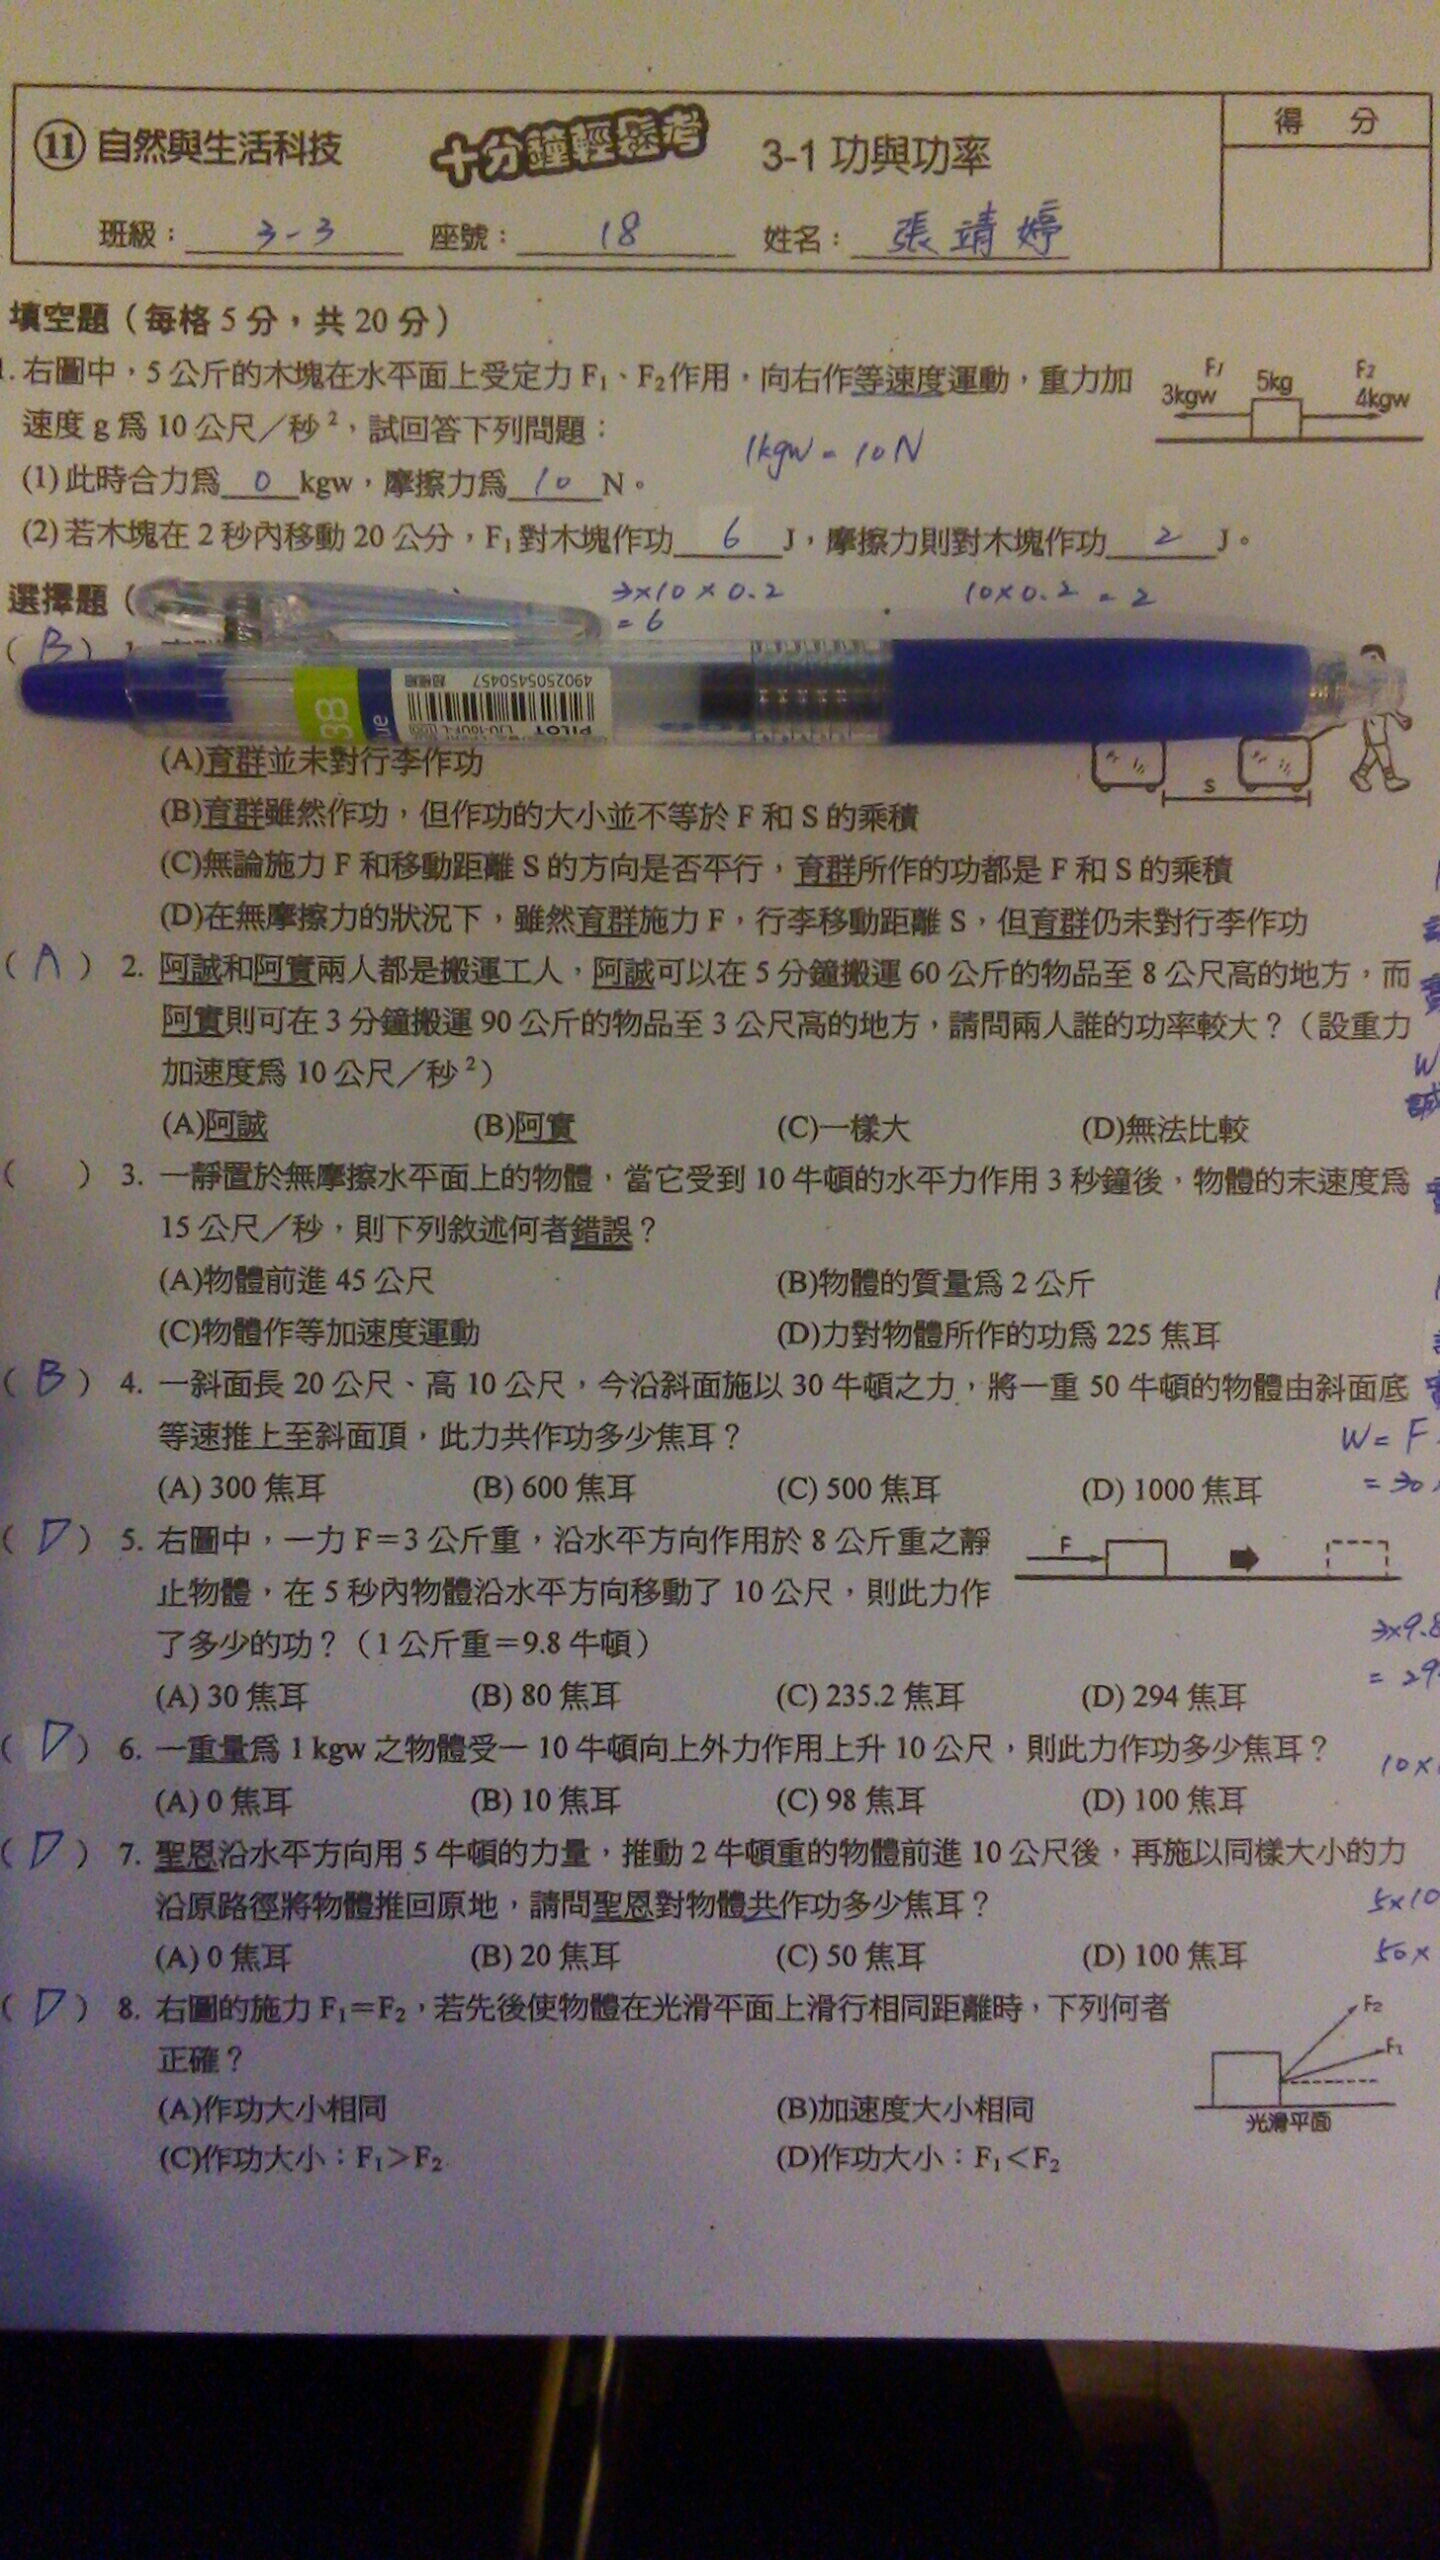 ⑪自然與生活科技 十分鐘輕鬆考 3-1 功與功率 得 分
班級： 3-3 座號： 18 姓名： 張靖婷
填空題（每格5分，共20分）
1. 右圖中，5公斤的木塊在水平面上受定力F₁、F₂作用，向右作等速度運動，重力加
F1 3kgw 5kg F2 4kgw
速度g為10公尺／秒²，試回答下列問題：
1kgw = 10N
(1)此時合力為 0 kgw，摩擦力為 10 N。
(2)若木塊在2秒內移動20公分，F₁對木塊作功 6 J，摩擦力則對木塊作功 2 J。
選擇題（
3×10×0.2 10×0.2 = 2
= 6
（B）1.
38 4902505450457
PILOT LJU-10UF-L
(A)育群並未對行李作功
S
(B)育群雖然作功，但作功的大小並不等於F和S的乘積
(C)無論施力F和移動距離S的方向是否平行，育群所作的功都是F和S的乘積
(D)在無摩擦力的狀況下，雖然育群施力F，行李移動距離S，但育群仍未對行李作功
（A）2. 阿誠和阿實兩人都是搬運工人，阿誠可以在5分鐘搬運60公斤的物品至8公尺高的地方，而
阿實則可在3分鐘搬運90公斤的物品至3公尺高的地方，請問兩人誰的功率較大？（設重力
加速度為10公尺／秒²）
W
(A)阿誠 (B)阿實 (C)一樣大 (D)無法比較
誠
（ ）3. 一靜置於無摩擦水平面上的物體，當它受到10牛頓的水平力作用3秒鐘後，物體的末速度為
15公尺／秒，則下列敘述何者錯誤？
(A)物體前進45公尺 (B)物體的質量為2公斤
(C)物體作等加速度運動 (D)力對物體所作的功為225焦耳
（B）4. 一斜面長20公尺、高10公尺，今沿斜面施以30牛頓之力，將一重50牛頓的物體由斜面底
等速推上至斜面頂，此力共作功多少焦耳？
W = F
(A) 300焦耳 (B) 600焦耳 (C) 500焦耳 (D) 1000焦耳
= 30
（D）5. 右圖中，一力F＝3公斤重，沿水平方向作用於8公斤重之靜
F
止物體，在5秒內物體沿水平方向移動了10公尺，則此力作
了多少的功？（1公斤重＝9.8牛頓）
3×9.8
(A) 30焦耳 (B) 80焦耳 (C) 235.2焦耳 (D) 294焦耳
= 29
（D）6. 一重量為1 kgw之物體受一10牛頓向上外力作用上升10公尺，則此力作功多少焦耳？
10×
(A) 0焦耳 (B) 10焦耳 (C) 98焦耳 (D) 100焦耳
（D）7. 聖恩沿水平方向用5牛頓的力量，推動2牛頓重的物體前進10公尺後，再施以同樣大小的力
沿原路徑將物體推回原地，請問聖恩對物體共作功多少焦耳？
5×10
(A) 0焦耳 (B) 20焦耳 (C) 50焦耳 (D) 100焦耳
50×
（D）8. 右圖的施力F₁＝F₂，若先後使物體在光滑平面上滑行相同距離時，下列何者
F₂
F₁
正確？
(A)作功大小相同 (B)加速度大小相同
光滑平面
(C)作功大小：F₁＞F₂ (D)作功大小：F₁＜F₂